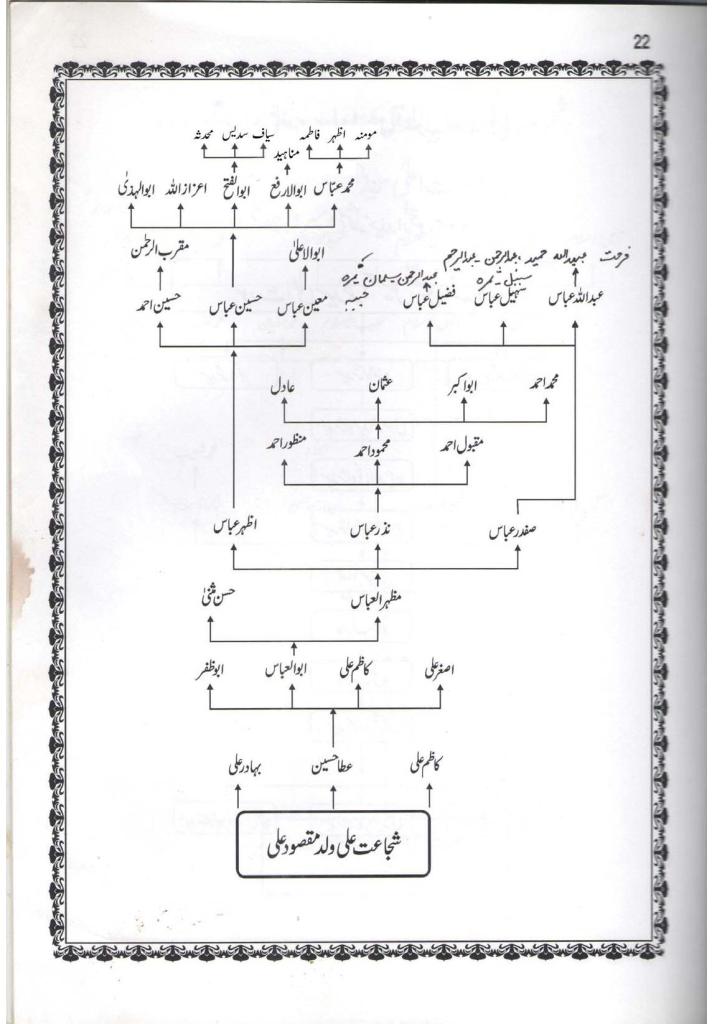 22
مومنہ اظہر فاطمہ سیاف سدیس محدثہ
مناہید
محمد عباس ابوالارفع ابوالفتح اعزاز اللہ ابوالہدیٰ
فرحت عبیداللہ حمید عبدالرحمن عبدالرحیم
ابوالاعلیٰ مقرب الرحمٰن
سنبل ثمرہ عبدالرحمن سلمان نمرہ
عبداللہ عباس سہیل عباس فضیل عباس حبیبہ معین عباس حسین عباس حسین احمد
محمد احمد ابوا کبر عثمان عادل
مقبول احمد محمود احمد منظور احمد
صفدر عباس نذر عباس اظہر عباس
مظہر العباس حسن مثنیٰ
اصغر علی کاظم علی ابوالعباس ابوظفر
کاظم علی عطا حسین بہادر علی
شجاعت علی ولد مقصود علی